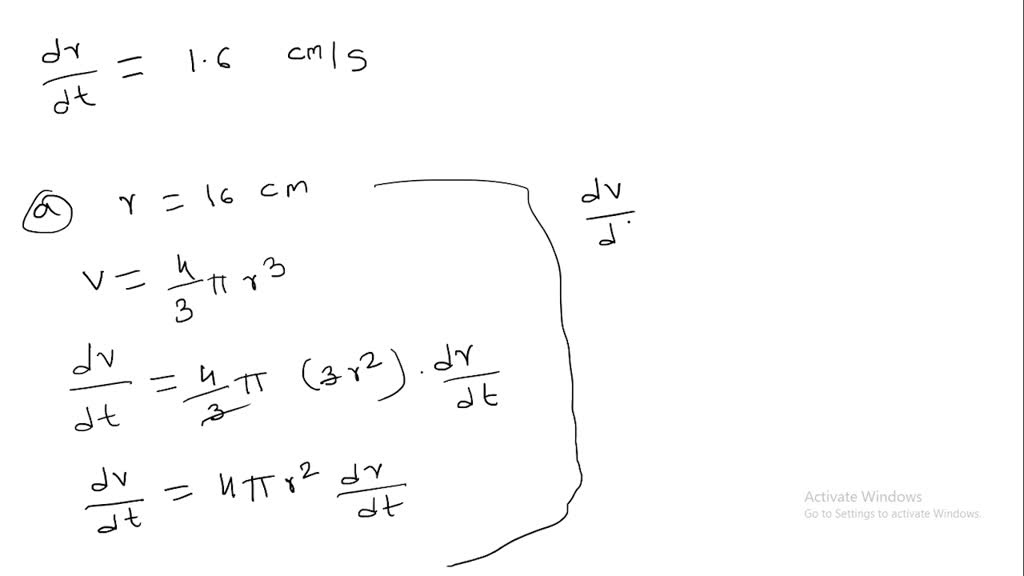 dr/dt = 1.6 cm/s
(a) r = 16 cm
V = 4/3 π r³
dv/dt = 4/3 π (3r²) · dr/dt
dv/dt = 4πr² dr/dt
dv/d
Activate Windows
Go to Settings to activate Windows.